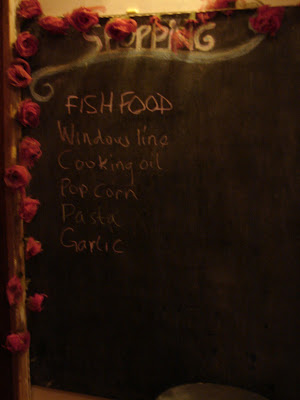 SHOPPING
FISH FOOD
Windowsline
Cooking oil
Popcorn
Pasta
Garlic